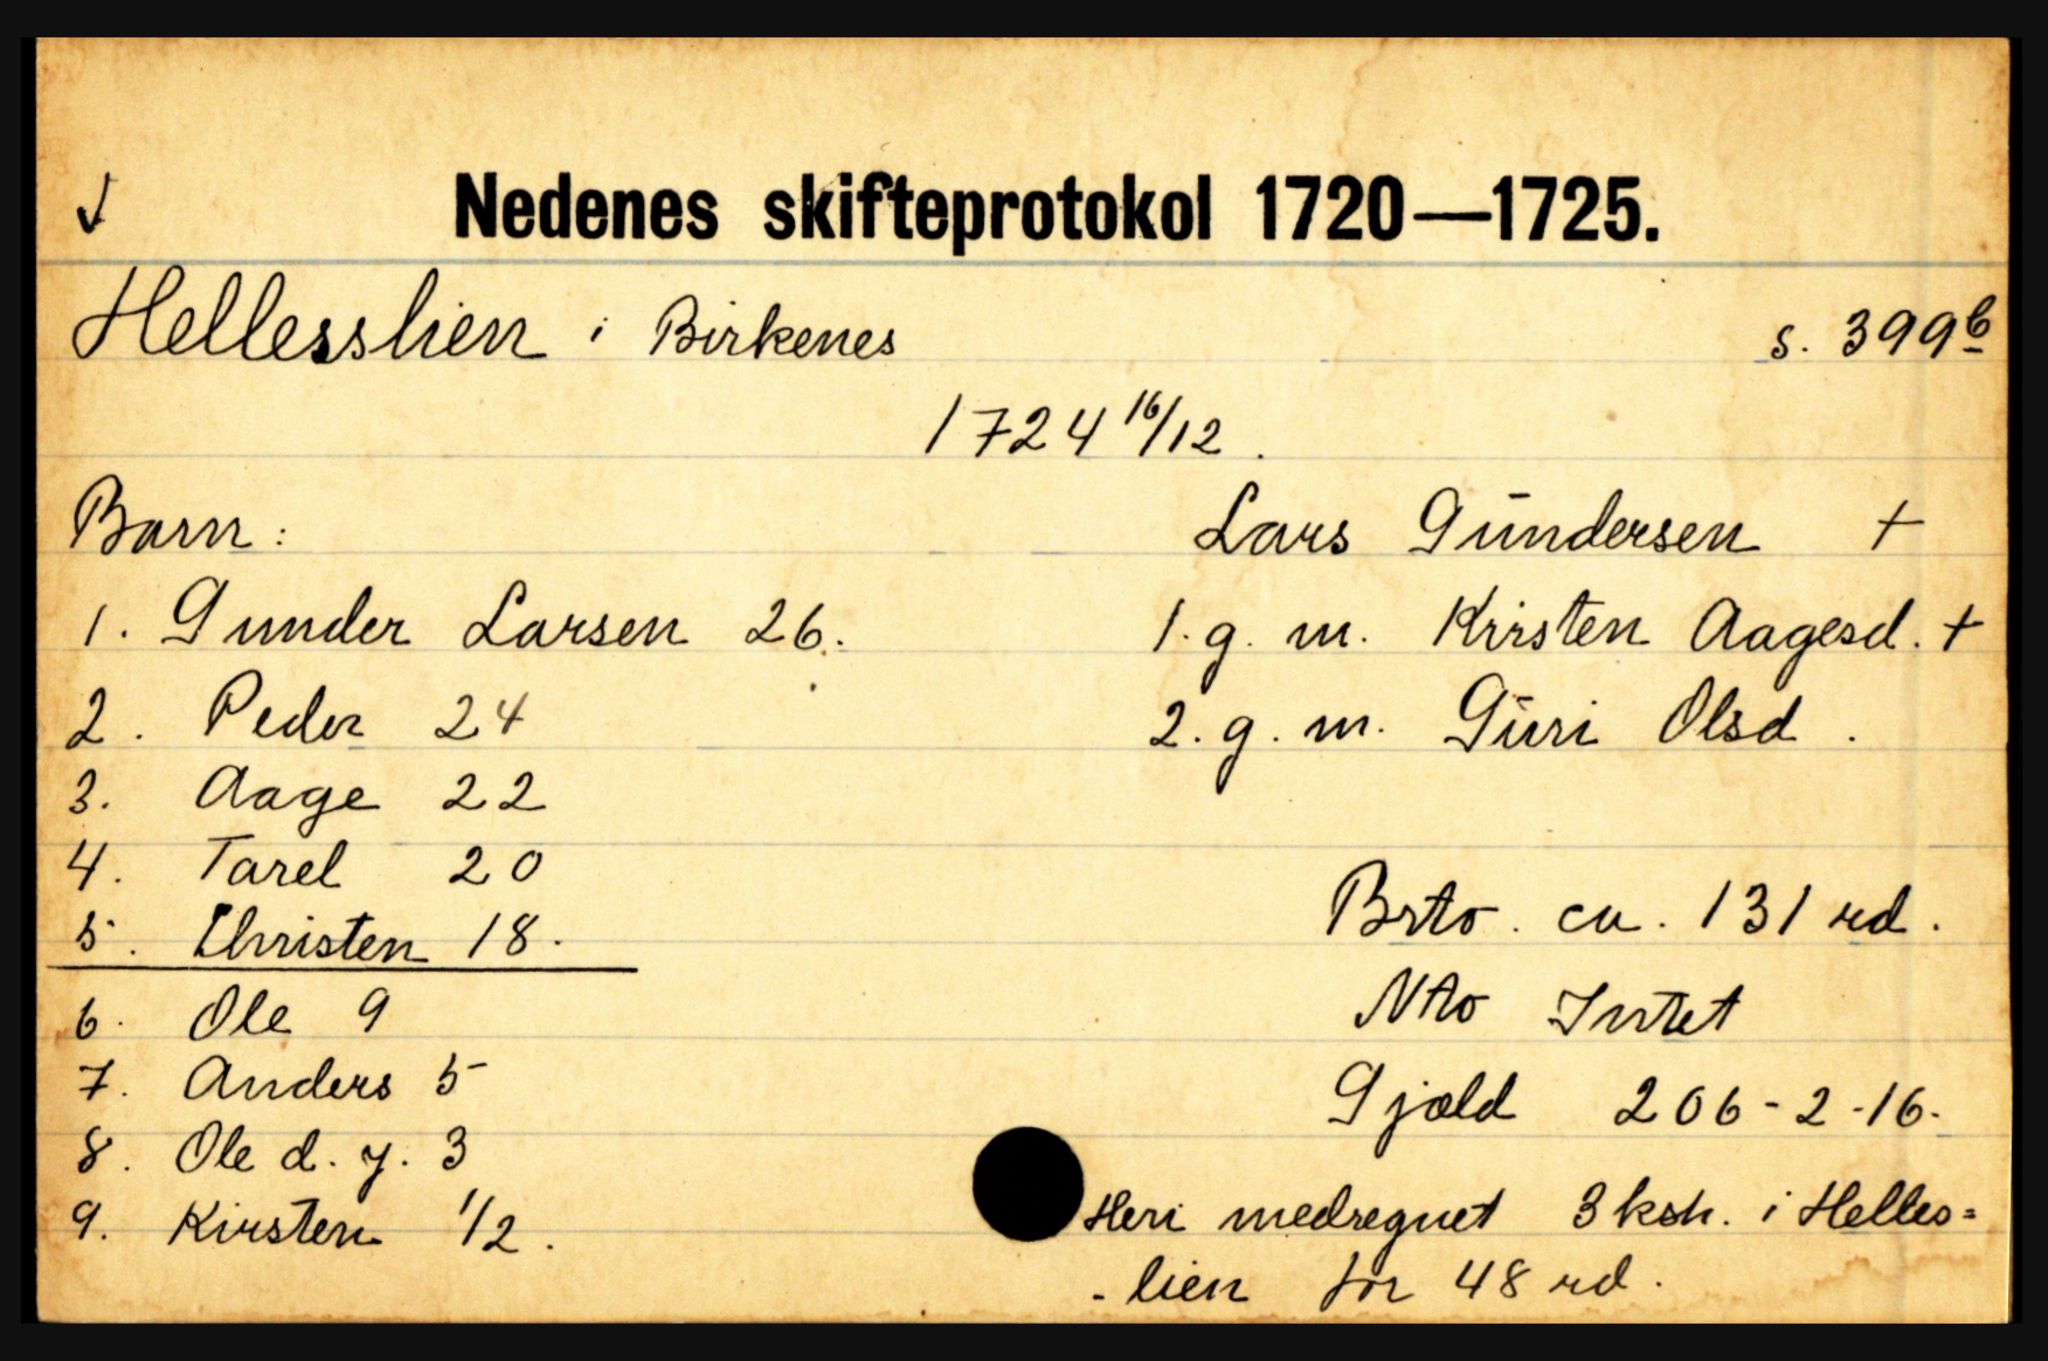 Nedenes skifteprotokol 1720—1725.
Hellesslien i Birkenes s. 399b
1724 16/12.
Barn:
Lars Gūndersen +
1. g. m. Kirsten Aagesd. +
2. g. m. Gūri Olsd.
1. Gunder Larsen 26.
2. Peder 24
3. Aage 22
4. Tarel 20
5. Christen 18.
6. Ole 9
7. Anders 5
8. Ole d. y. 3
9. Kirsten 1/2.
Brto. ca. 131 rd.
Nto Intet
Gjæld 206-2-16.
Heri medregnet 3 ksh. i Helles=
-lien for 48 rd.